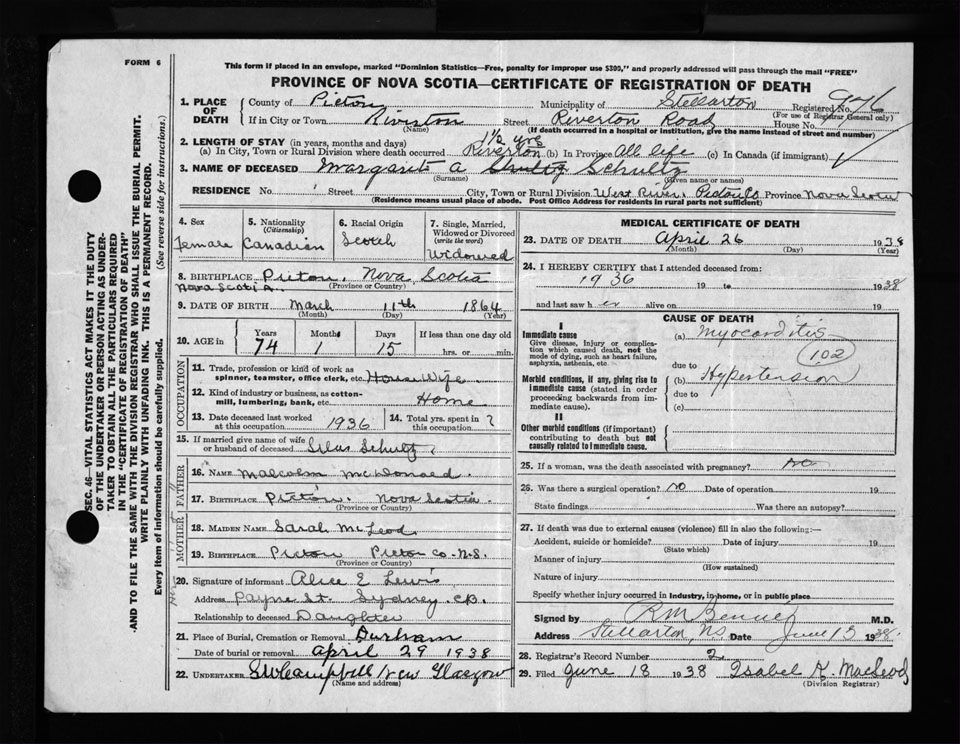 FORM 6
This form if placed in an envelope, marked "Dominion Statistics—Free, penalty for improper use $300," and properly addressed will pass through the mail "FREE"
PROVINCE OF NOVA SCOTIA—CERTIFICATE OF REGISTRATION OF DEATH
1. PLACE OF DEATH
County of Pictou Municipality of Stellarton Registered No. 976
(For use of Registrar General only)
If in City or Town Riverton Street Riverton Road House No.
(Name) (If death occurred in a hospital or institution, give the name instead of street and number)
2. LENGTH OF STAY (in years, months and days) 1½ yrs
(a) In City, Town or Rural Division where death occurred Riverton (b) In Province All life (c) In Canada (if immigrant)
3. NAME OF DECEASED Margaret A Shultz Schultz
(Surname) (Given name or names)
RESIDENCE No. Street City, Town or Rural Division West River Pictou Co Province Nova Scotia
(Residence means usual place of abode. Post Office Address for residents in rural parts not sufficient)
4. Sex Female
5. Nationality (Citizenship) Canadian
6. Racial Origin Scotch
7. Single, Married, Widowed or Divorced (write the word) Widowed
8. BIRTHPLACE Pictou, Nova Scotia
Nova Scotia. (Province or Country)
9. DATE OF BIRTH March 11th 1864
(Month) (Day) (Year)
10. AGE in Years Months Days If less than one day old
74 1 15 hrs. or min.
OCCUPATION
11. Trade, profession or kind of work as spinner, teamster, office clerk, etc. House Wife
12. Kind of industry or business, as cotton-mill, lumbering, bank, etc. Home
13. Date deceased last worked at this occupation 1936
14. Total yrs. spent in this occupation ?
15. If married give name of wife or husband of deceased Silas Schultz
FATHER
16. NAME Malcolm McDonald
17. BIRTHPLACE Pictou. Nova Scotia
(Province or Country)
MOTHER
18. MAIDEN NAME Sarah McLeod
19. BIRTHPLACE Pictou Pictou Co. N.S.
(Province or Country)
20. Signature of informant Alice E Lewis
Address Payne St. Sydney C.B.
Relationship to deceased Daughter
21. Place of Burial, Cremation or Removal Durham
Date of burial or removal April 29 1938
22. UNDERTAKER SW Campbell New Glasgow
(Name and address)
MEDICAL CERTIFICATE OF DEATH
23. DATE OF DEATH April 26 1938
(Month) (Day) (Year)
24. I HEREBY CERTIFY that I attended deceased from:
1936 19 to 1938
and last saw her alive on 19
CAUSE OF DEATH
I
Immediate cause
Give disease, injury or complication which caused death, not the mode of dying, such as heart failure, asphyxia, asthenia, etc.
(a) Myocarditis
102
due to
Morbid conditions, if any, giving rise to immediate cause (stated in order proceeding backwards from immediate cause).
(b) Hypertension
due to
(c)
II
Other morbid conditions (if important) contributing to death but not causally related to immediate cause.
25. If a woman, was the death associated with pregnancy? no
26. Was there a surgical operation? no Date of operation 19
State findings Was there an autopsy?
27. If death was due to external causes (violence) fill in also the following:—
Accident, suicide or homicide? Date of injury 19
(State which)
Manner of injury
(How sustained)
Nature of injury
Specify whether injury occurred in industry, in home, or in public place
Signed by M.D.
Address Stellarton, NS Date June 13 1938.
28. Registrar's Record Number 2
29. Filed June 18 1938 Isabel K. MacLeod
(Division Registrar)
SEC. 46—VITAL STATISTICS ACT MAKES IT THE DUTY
OF THE UNDERTAKER OR PERSON ACTING AS UNDER-
TAKER TO OBTAIN ALL THE PARTICULARS REQUIRED
IN THE "CERTIFICATE OF REGISTRATION OF DEATH"
AND TO FILE THE SAME WITH THE DIVISION REGISTRAR WHO SHALL ISSUE THE BURIAL PERMIT.
WRITE PLAINLY WITH UNFADING INK. THIS IS A PERMANENT RECORD.
Every item of information should be carefully supplied. (See reverse side for instructions.)